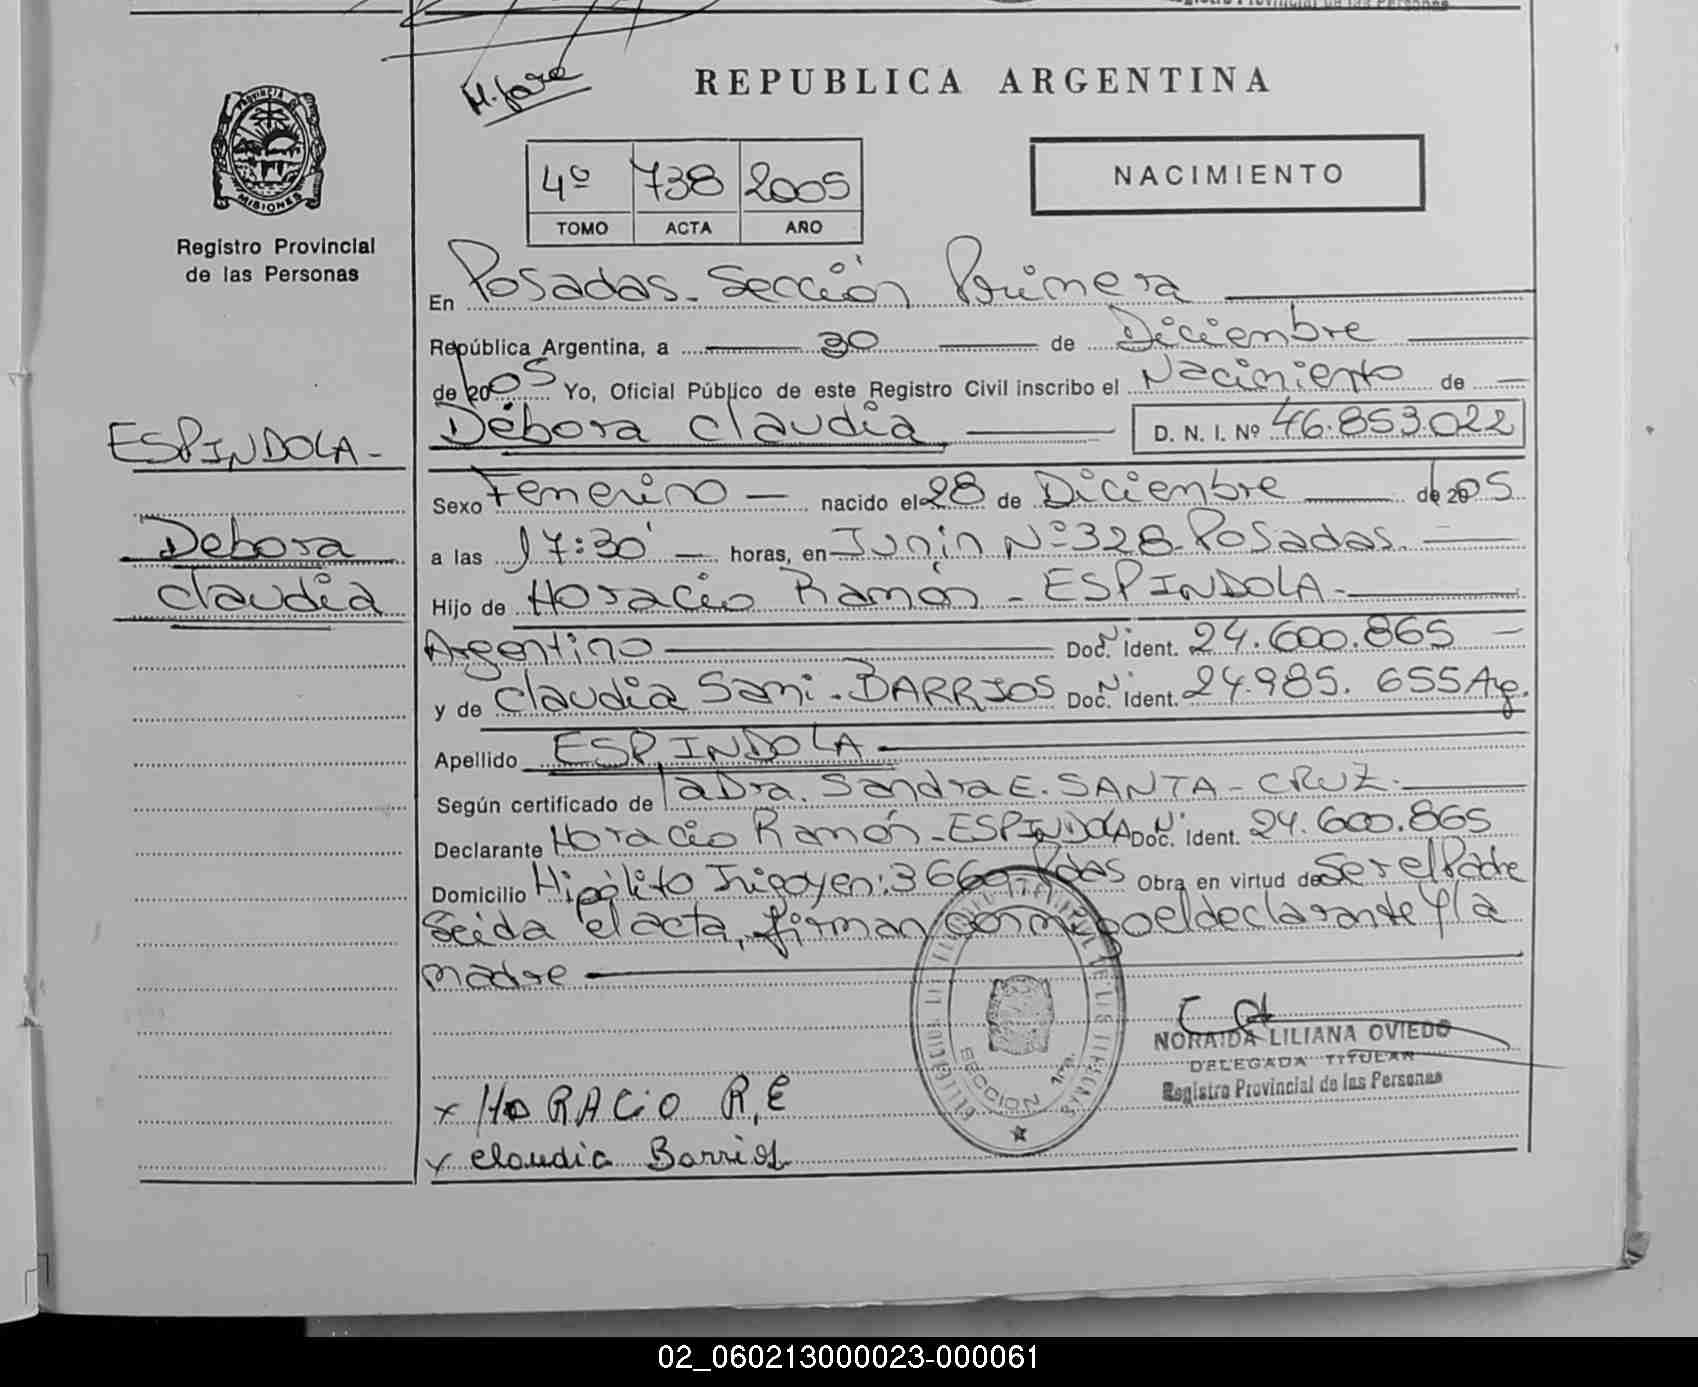 Registro Provincial de las Personas
M. Jara
REPUBLICA ARGENTINA
PROVINCIA DE
MISIONES
Registro Provincial
de las Personas
4º 738 2005
TOMO ACTA AÑO
NACIMIENTO
En Posadas. Sección Primera
República Argentina, a 30 de Diciembre
de 2005 Yo, Oficial Público de este Registro Civil inscribo el Nacimiento de
Débora Claudia D. N. I. Nº 46.853.022
ESPINDOLA -
Debora
Claudia
Sexo Femenino - nacido el 28 de Diciembre de 2005
a las 17:30' - horas, en Junín Nº 328. Posadas.
Hijo de Horacio Ramón - ESPINDOLA -
Argentino Doc. N. ident. 24.600.865 -
y de Claudia Sani - BARRIOS Doc. N. ident. 24.985.655 Arg.
Apellido ESPINDOLA -
Según certificado de la Dra. Sandra E. SANTA - CRUZ.
Declarante Horacio Ramón - ESPINDOLA Doc. N. ident. 24.600.865
Domicilio Hipólito Irigoyen: 3660 - Pdas Obra en virtud de Ser el Padre
Leida el acta, firman conmigo el declarante y la
madre
SECCION 1ra.
NORAIDA LILIANA OVIEDO
DELEGADA TITULAR
Registro Provincial de las Personas
x HORACIO R.E
x Claudia Barrios
02_060213000023-000061